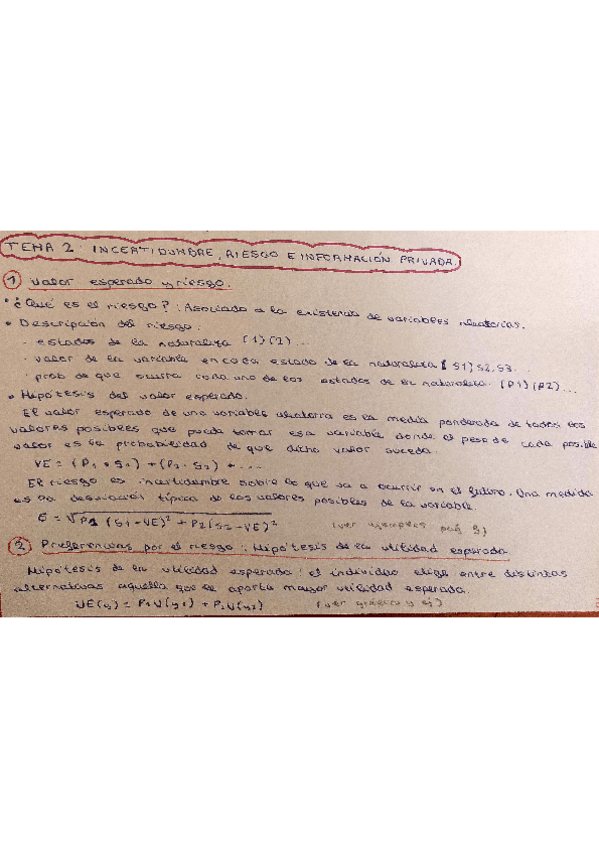 TEMA 2: INCERTIDUMBRE, RIESGO E INFORMACIÓN PRIVADA.
1 Valor esperado y riesgo.
• ¿Qué es el riesgo?: Asociado a la existencia de variables aleatorias.
• Descripción del riesgo:
· estados de la naturaleza (1)(2)...
· valor de la variable en cada estado de la naturaleza (S1) S2, S3...
· prob de que ocurra cada uno de los estados de la naturaleza. (P1)(P2)...
• Hipótesis del valor esperado.
El valor esperado de una variable aleatoria es la media ponderada de todos los
valores posibles que pueda tomar esa variable donde el peso de cada posible
valor es la probabilidad de que dicho valor suceda.
VE = (P1 • S1) + (P2 · S2) + ...
El riesgo es incertidumbre sobre lo que va a ocurrir en el futuro. Una medida
es la desviación típica de los valores posibles de la variable.
6 = √P1 (S1-VE)² + P2(S2-VE)² (ver ejemplos pag 5)
2 Preferencias por el riesgo: Hipótesis de la utilidad esperada
Hipótesis de la utilidad esperada: el individuo elige entre distintas
alternativas aquella que le aporta mayor utilidad esperada.
UE(y) = P1U(y1) + P2U(y2) (ver gráfico y ej)